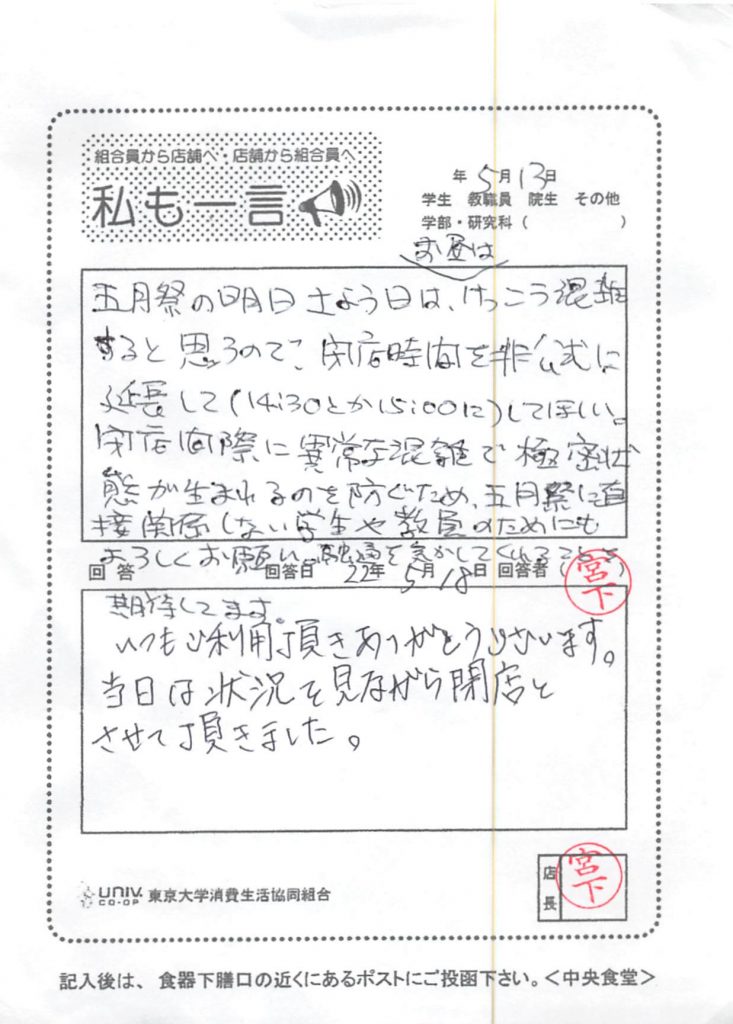 組合員から店舗へ・店舗から組合員へ
私も一言
年 5月13日
学生 教職員 院生 その他
学部・研究科（　　　　）
お昼は
五月祭の明日土よう日は、けっこう混雑
すると思うので、閉店時間を非公式に
延長して(14:30とか15:00に)してほしい。
閉店間際に異常な混雑で極密状
態が生まれるのを防ぐため、五月祭に直
接関係しない学生や教員のためにも
よろしくお願い。融通を気かしてくれること
期待してます。
回答 回答日 22年 5月18日 回答者（宮下）
いつもご利用頂きありがとうございます。
当日は状況を見ながら閉店と
させて頂きました。
店長 宮下
UNIV. CO-OP 東京大学消費生活協同組合
記入後は、食器下膳口の近くにあるポストにご投函下さい。＜中央食堂＞